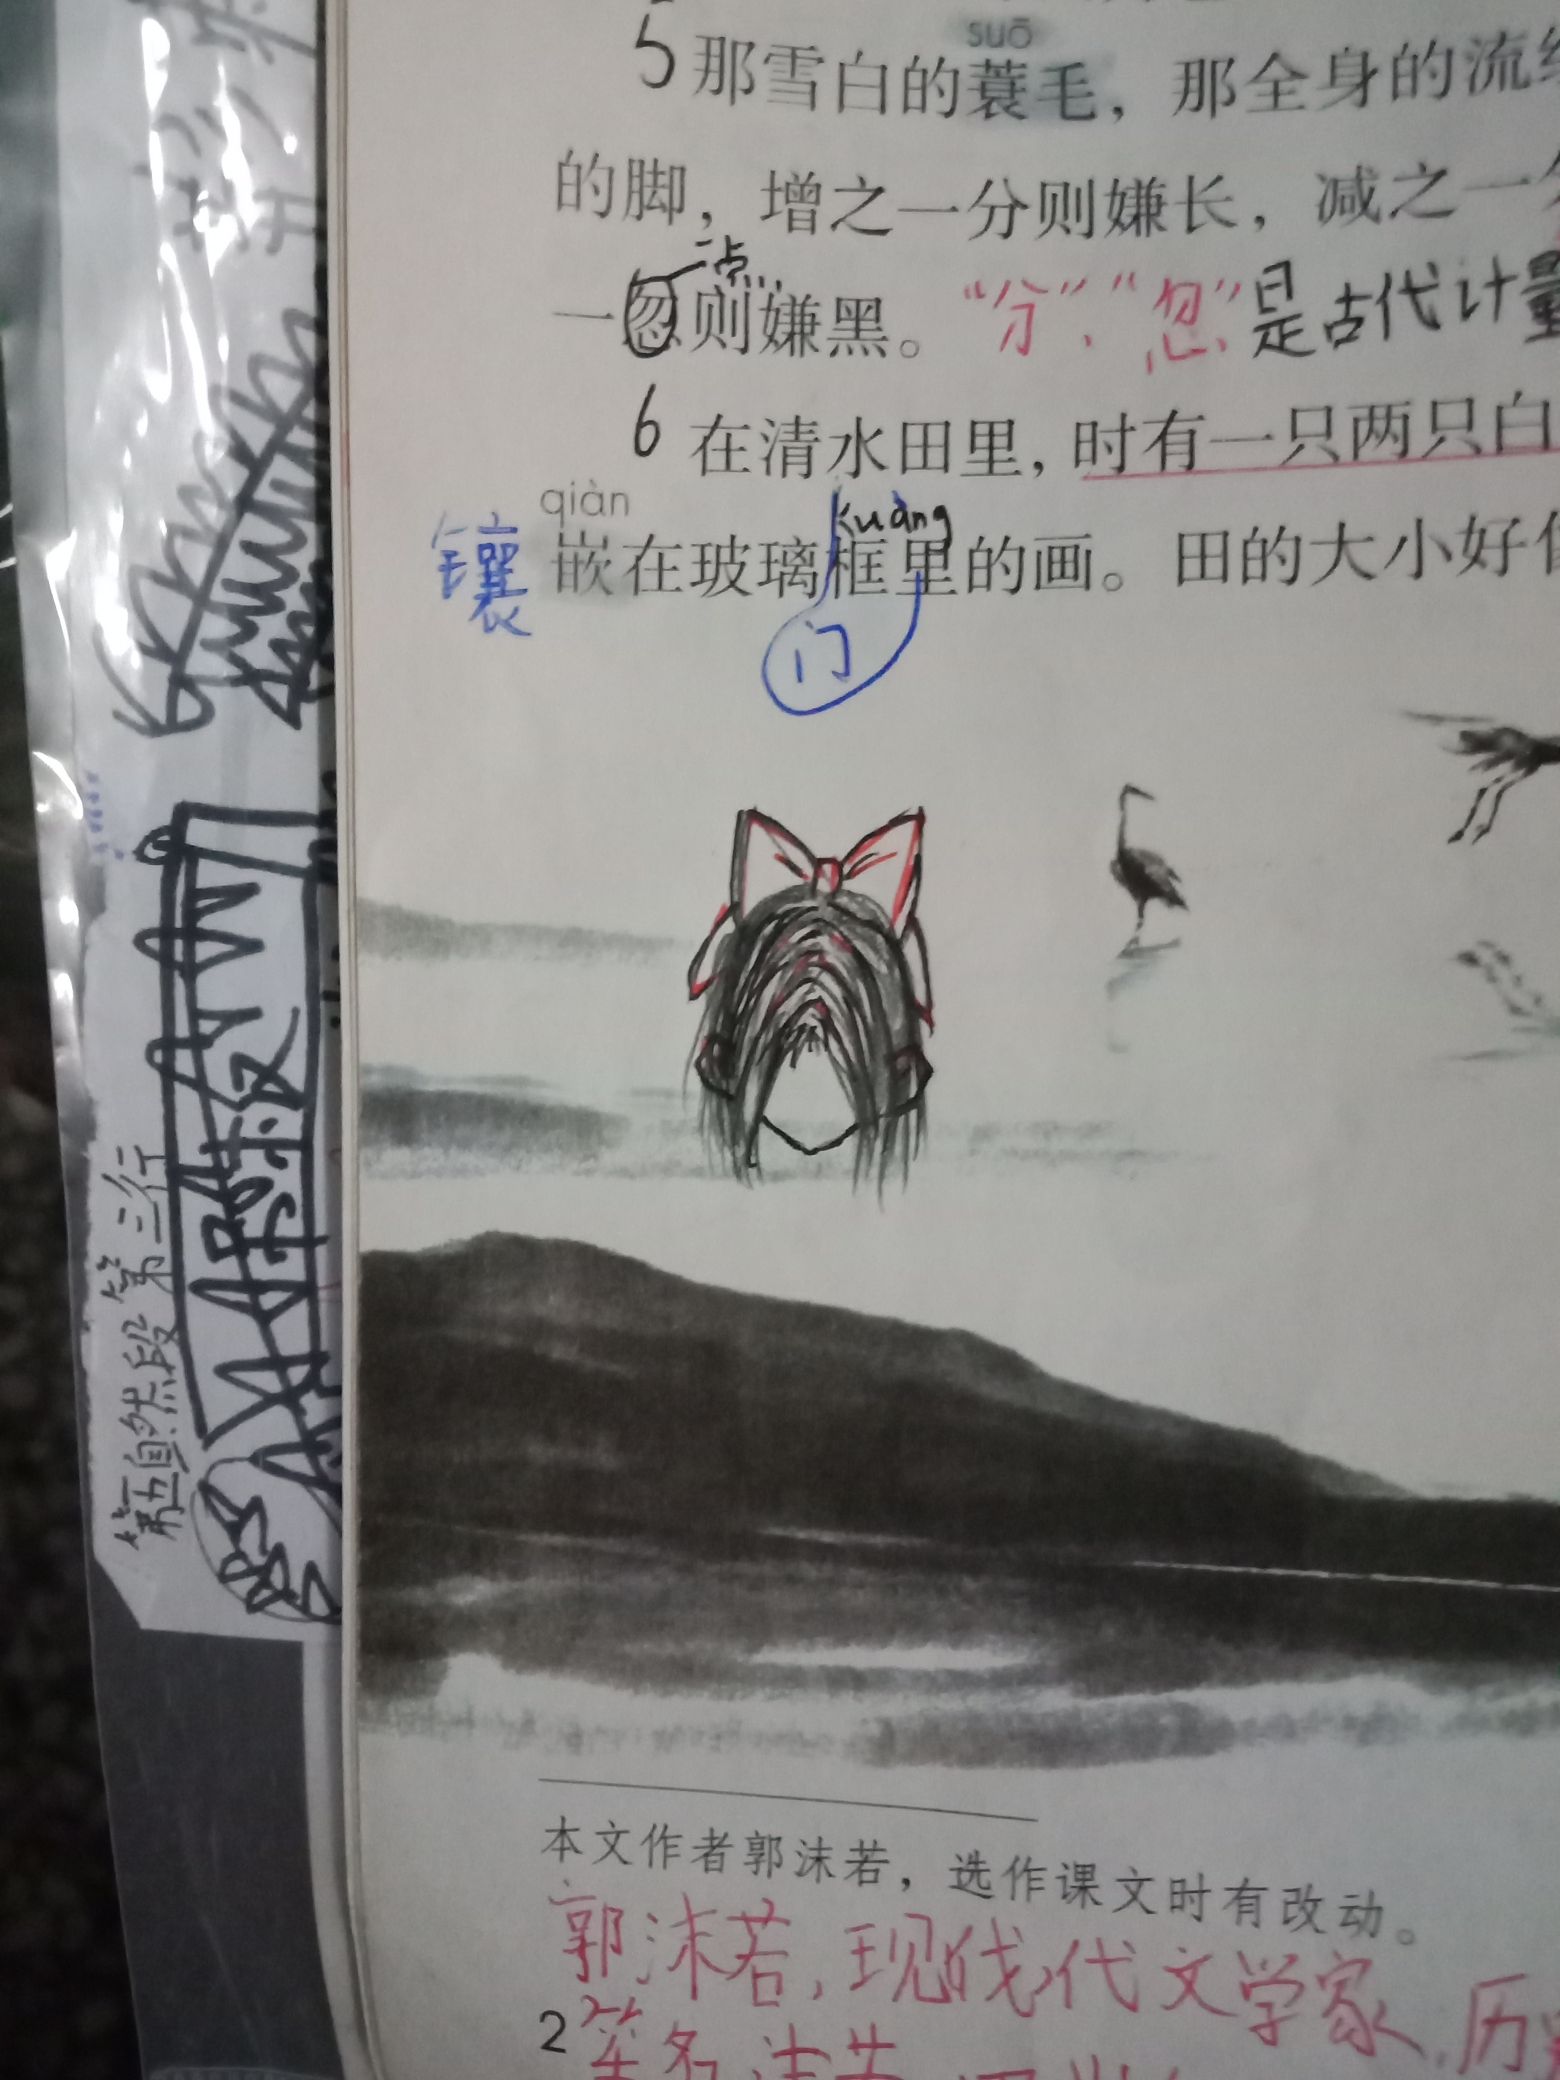 suō
5那雪白的蓑毛，那全身的流
的脚，增之一分则嫌长，减之一
一点…
一忽则嫌黑。“分”、“忽”是古代计量
6 在清水田里，时有一只两只白
qiàn kuàng
镶 嵌在玻璃框里的画。田的大小好
门
第五自然段 第三行
本文作者郭沫若，选作课文时有改动。
郭沫若，现代文学家，历
2
笔名